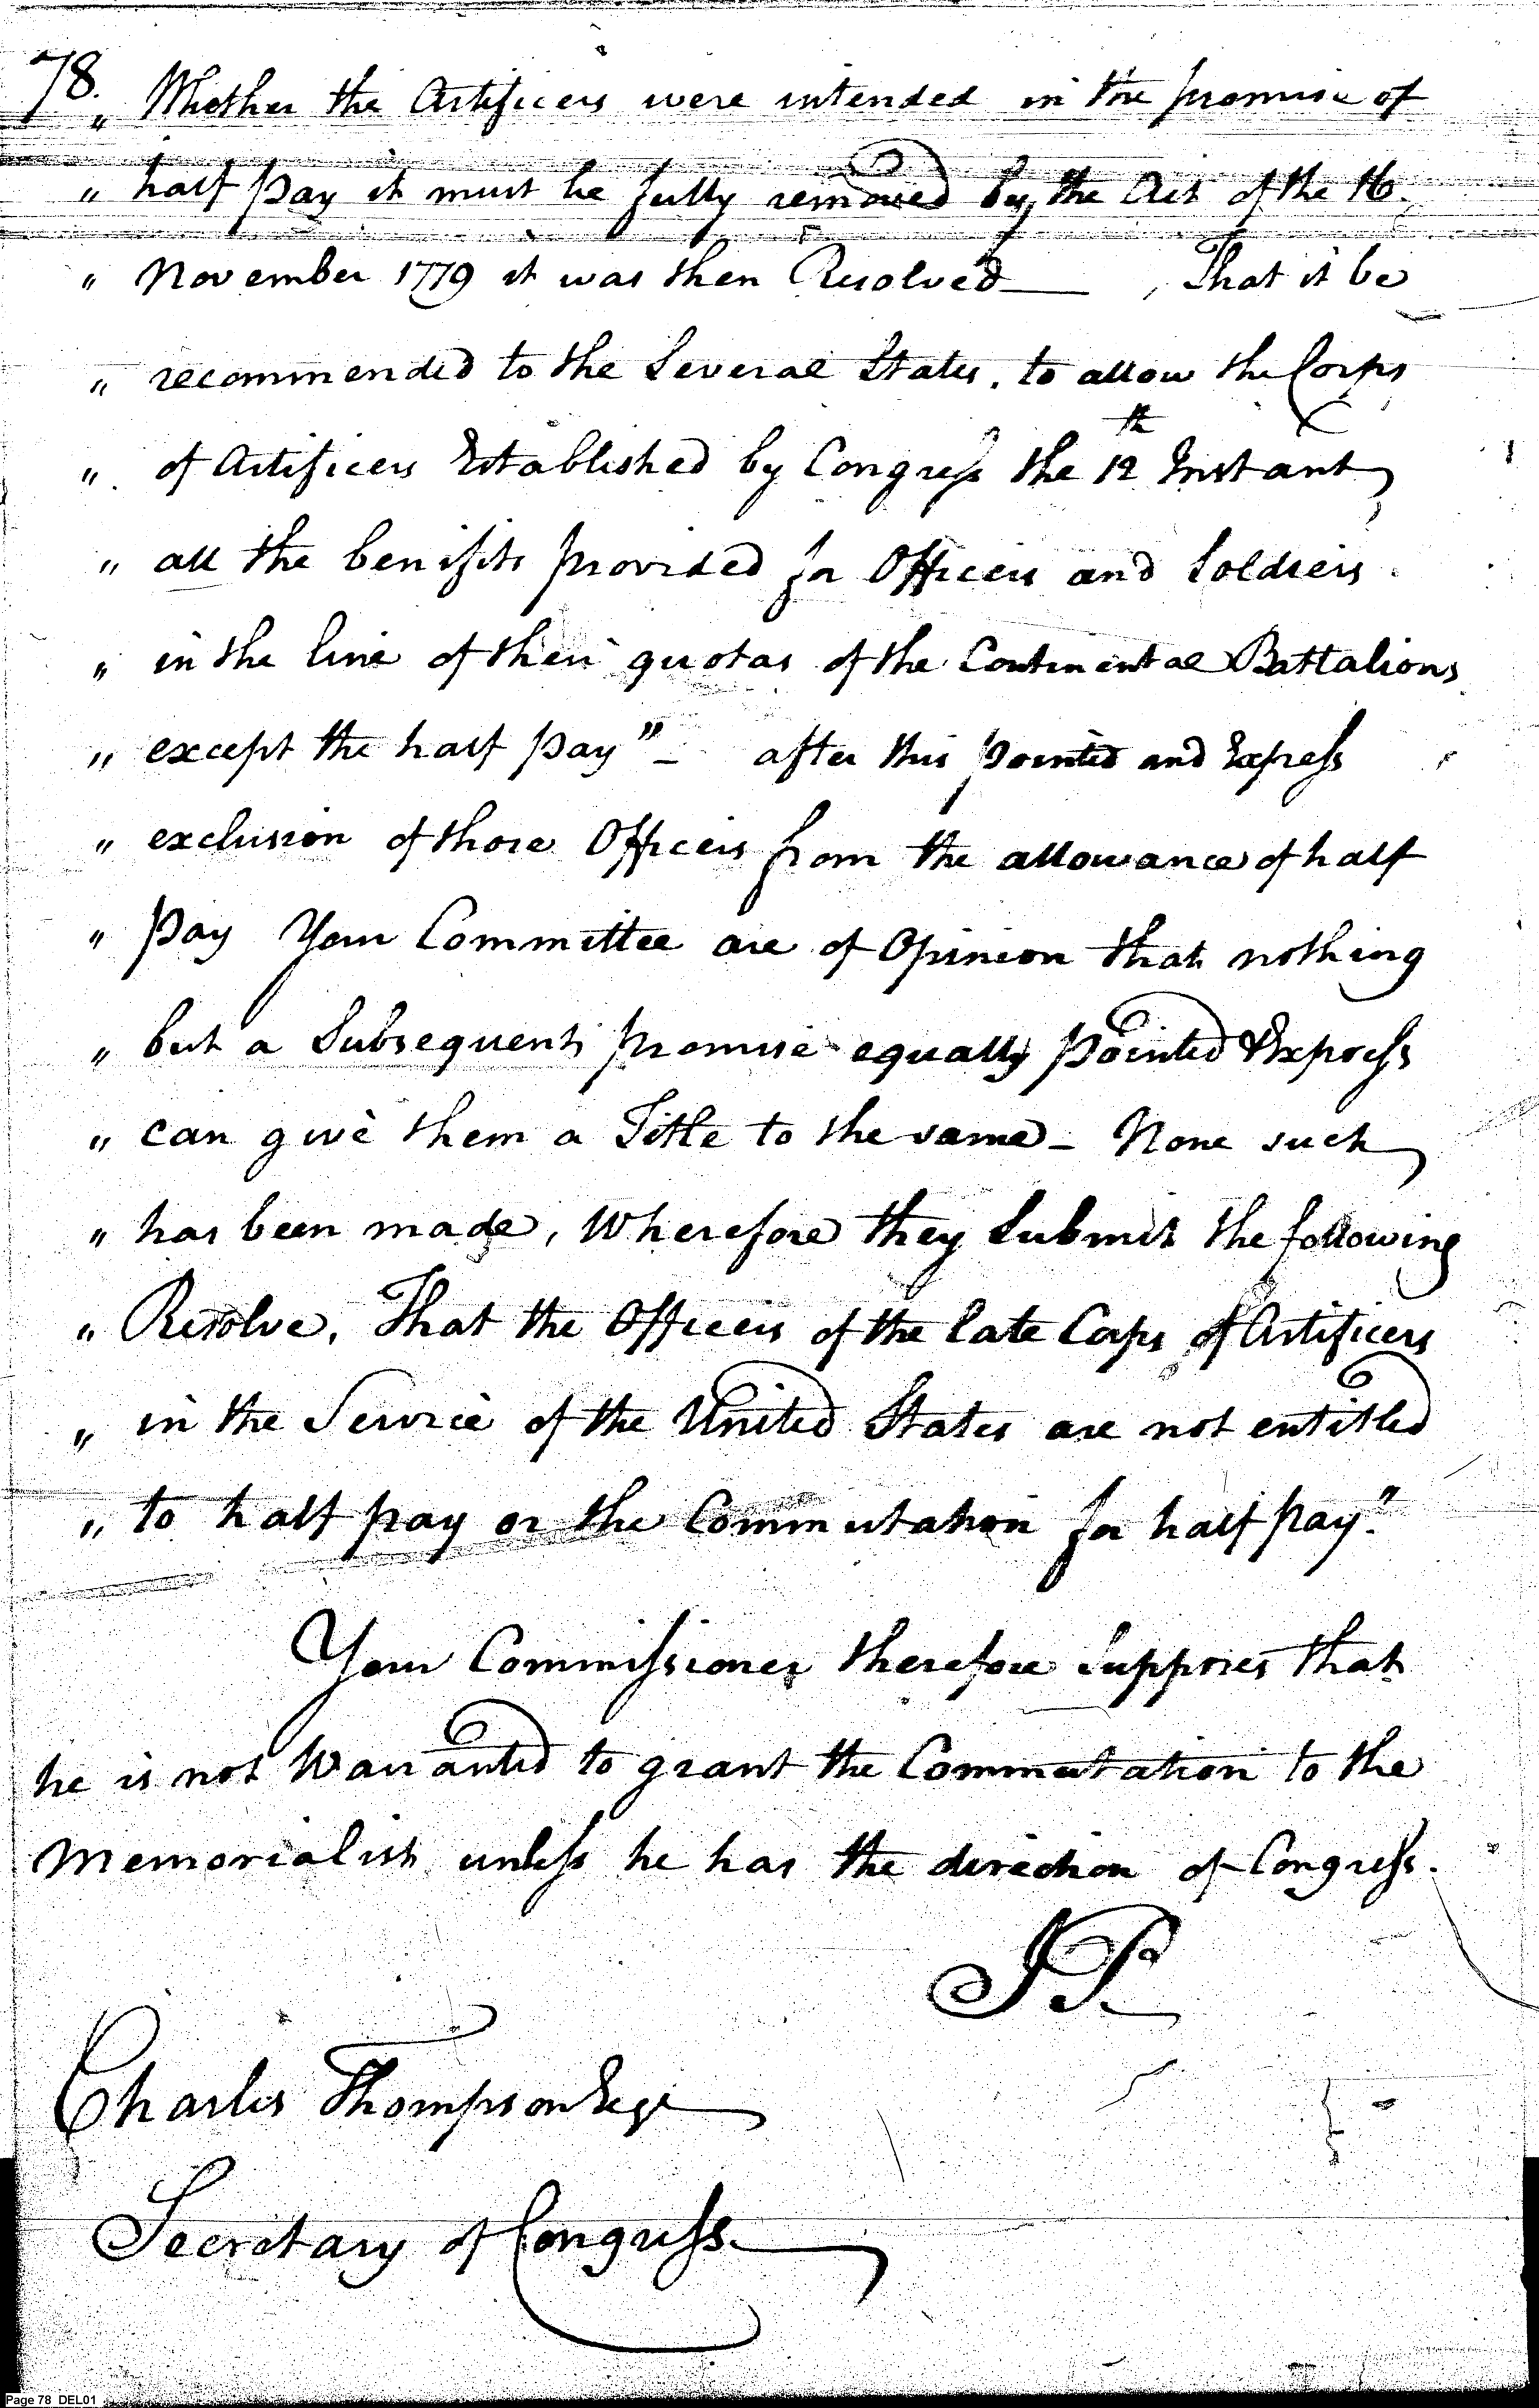 78.
" Whether the Artificers were intended in the promise of
" half pay it must be fully removed by the Act of the 16.
" November 1779 it was then Resolved — , That it be
" recommended to the Several States, to allow the Corps
" of Artificers Established by Congress the 12th Instant
" all the benifits provided for Officers and Soldiers
" in the line of their quotas of the Continental Battalions
" except the half pay" – after this pointed and Express
" exclusion of those Officers from the allowance of half
" pay Your Committee are of Opinion that nothing
" but a Subsequent promise equally pointed & Express
" can give them a Title to the same – None such
" has been made, Wherefore they Submit the following
" Resolve, That the Officers of the late Corps of Artificers
" in the Service of the United States are not entitled
" to half pay or the Commutation for half pay."
Your Commissioner therefore Supposes that
he is not Warranted to grant the Commutation to the
Memorialist unless he has the direction of Congress.
J P
Charles Thompson Esqr
Secretary of Congress.
Page 78 DEL01